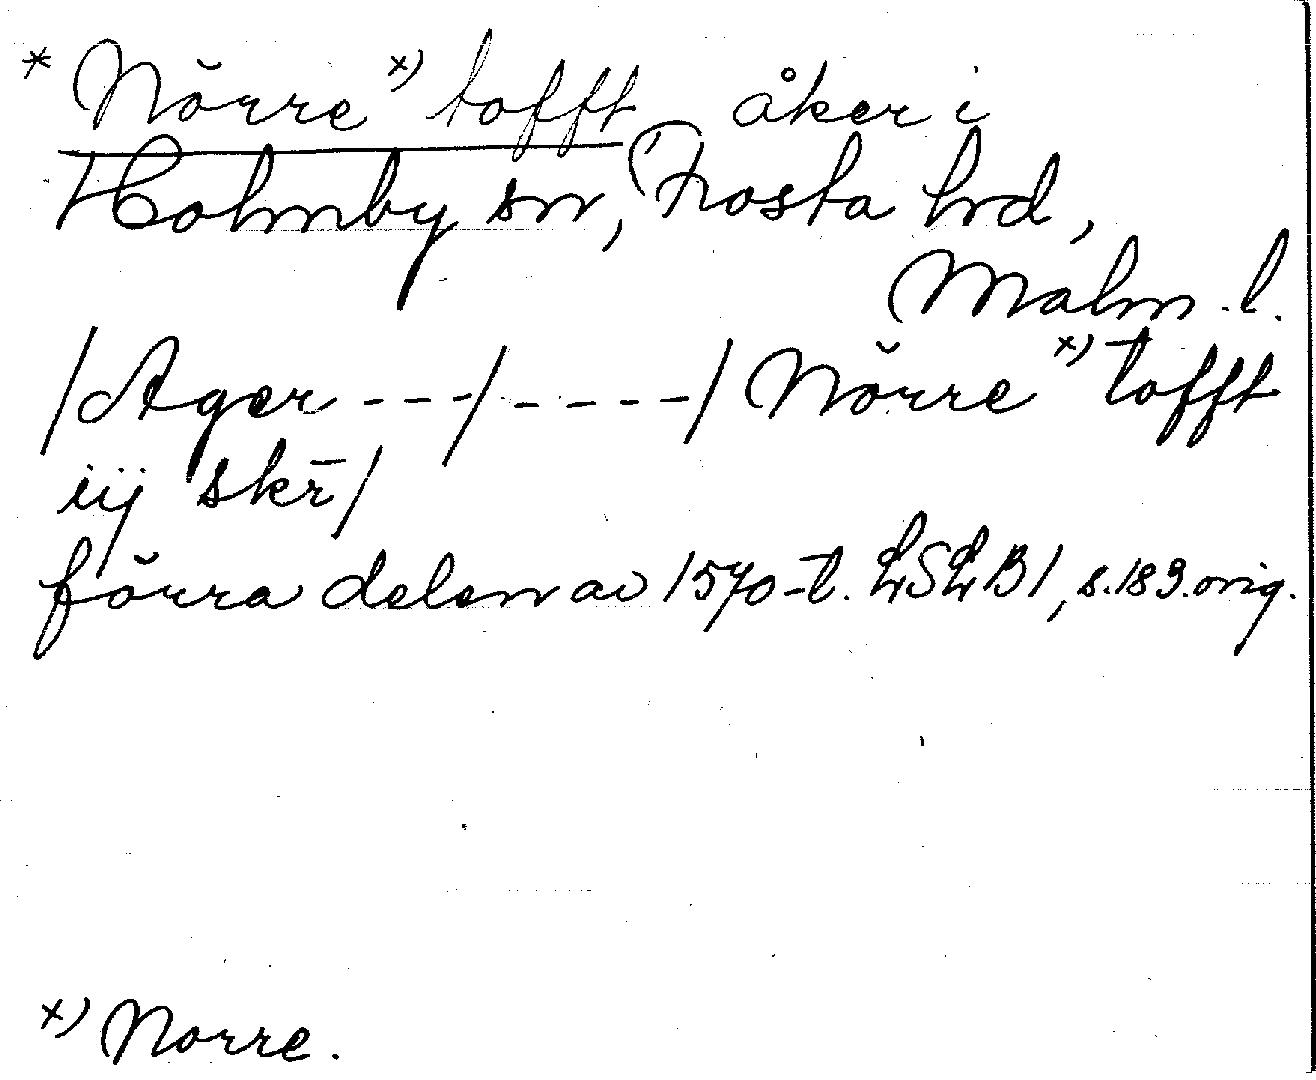 * Nŏrre x) tofft åker i
Holmby sn, Frosta hd,
Malm. l.
/Ager ---/-----/ Nŏrre x) tofft
iij skr̄/
fŏrra delen av 1570-t. LSLB1, s.183.orig.
x) Norre.